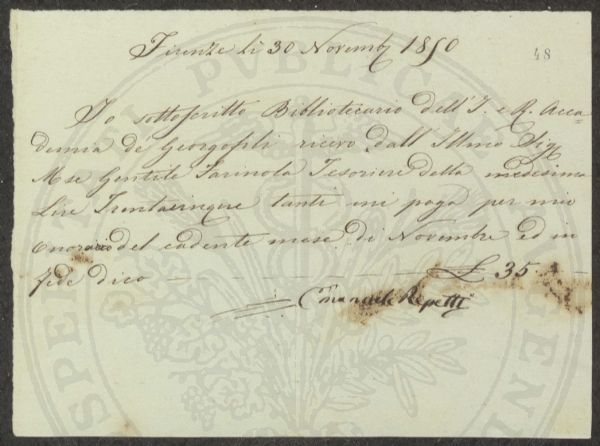 Firenze li 30 Novemb 1850
48
Io sottoscritto Bibliotecario dell'I. e R. Acca=
demia de' Georgofili ricevo dall'Illmo Sig
Mse Gentile Farinola Tesoriere della medesima
Lire Trentacinque tanti mi paga per mio
Onorario del cadente mese di Novembre ed in
fede dico — £ 35 —
Emanuele Repetti
PUBLICAE
PROSPERITATI
AUGENDAE